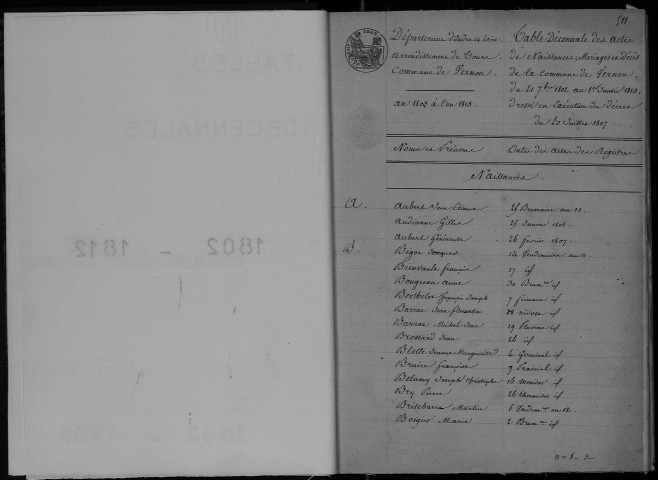 TABLES
DECENNALES
1802 - 1812
511
Département d'Indre et Loire
arrondissement de Tours
Commune de Vernou
an 1803 à l'an 1813.
Table Décennale des Actes
de Naissances, Mariages et décès
de la Commune de Vernou
du 21 7bre 1802 au 1er Janvier 1813.
dressé en Exécution du décret
du 20 Juillet 1807.
Noms et Prénoms Dates des actes des Registres
Naissances.
A. Aubert Etienne 25 Brumaire an 13.
Audianne Gilles 25 Janvier 1806.
Aubert Généreuse 26 février 1807.
B. Begos Jacques 14 Vendémiaire an 11.
Bienvault françois 17 if
Bougreau anne 30 Brum.re if
Berthelot françois Joseph 7 frimaire if
Barras Jean Florentin nivose if
Barras Michel Jean 19 Pluviose if
Brossard Jean 26 if
Blotte Jeanne Marguerite 4 Germinal if
Bruère françoise 9 Prairial if
Belamy Joseph Christophe 16 Messidor if
Bry Pierre 26 thermidor if
Brisebarre Martin 6 Vendém.re an 12.
Boigus Marie 2 Brum.re if